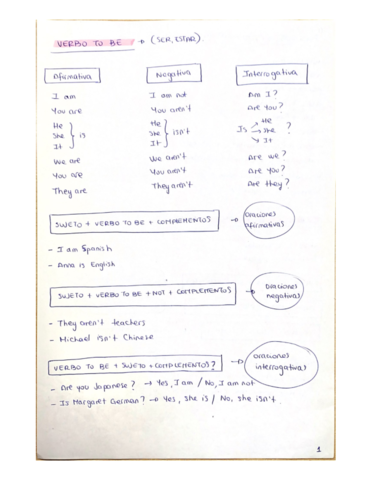 VERBO TO BE → (SER, ESTAR).
Afirmativa Negativa Interrogativa
I am I am not Am I?
You are You aren't Are you?
He He He
She } is She } isn't Is → She ?
It It It
We are We aren't Are we?
You are You aren't Are you?
They are They aren't Are they?
SUJETO + VERBO TO BE + COMPLEMENTOS → Oraciones afirmativas
- I am Spanish
- Anna is English
SUJETO + VERBO TO BE + NOT + COMPLEMENTOS → Oraciones negativas
- They aren't teachers
- Michael isn't Chinese
VERBO TO BE + SUJETO + COMPLEMENTOS? → oraciones interrogativas
- Are you Japanese? → Yes, I am / No, I am not
- Is Margaret German? → Yes, she is / No, she isn't.
1